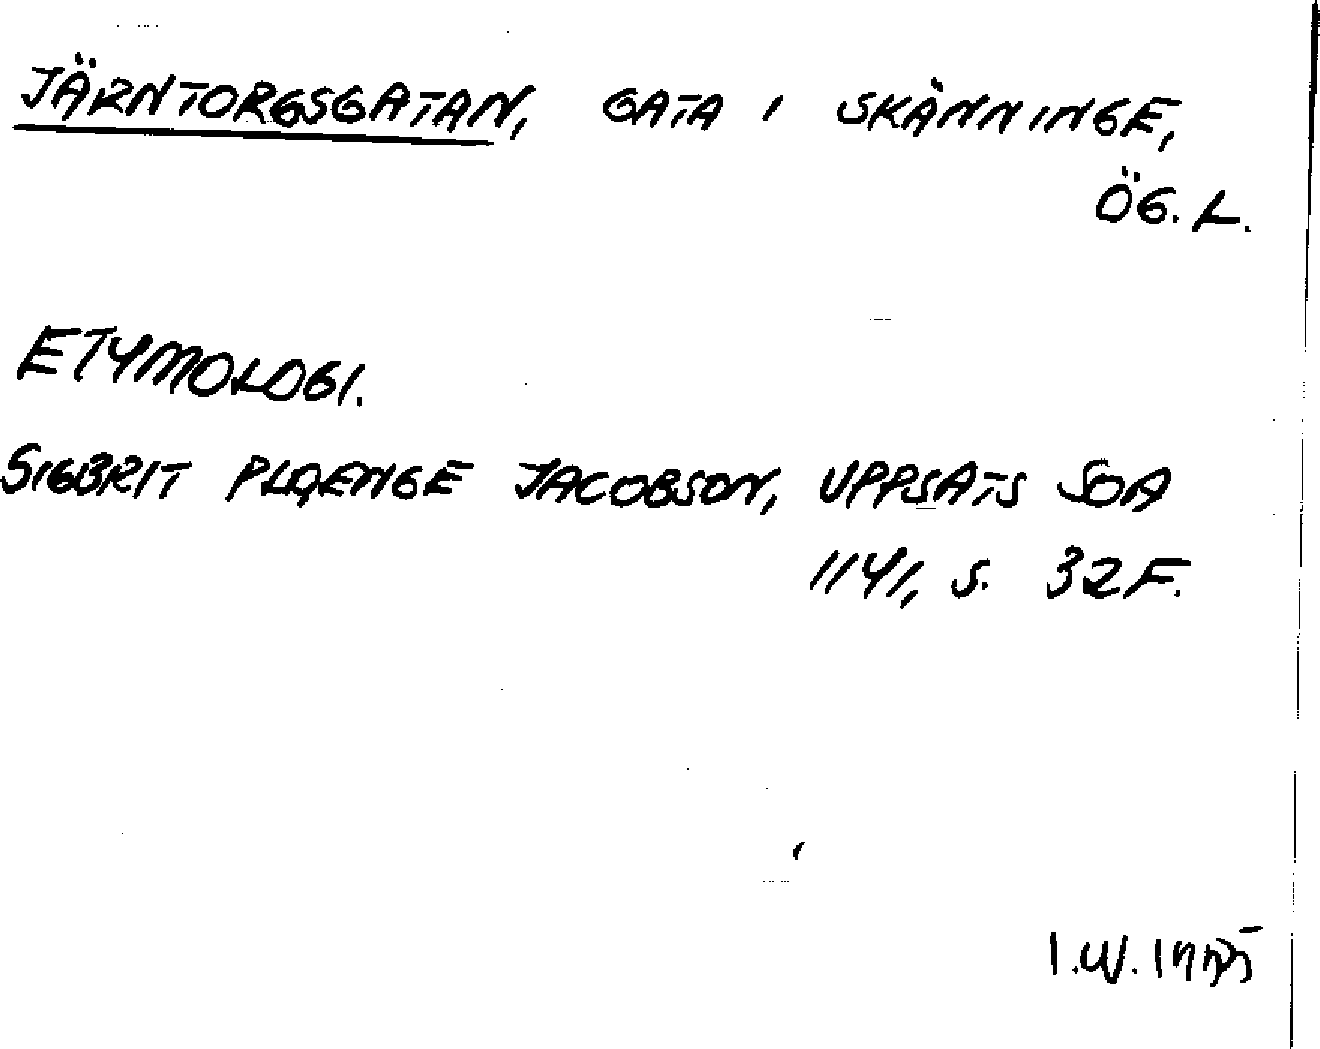 JÄRNTORGSGATAN, GATA I SKÄNNINGE,
ÖG. L.
ETYMOLOGI.
SIGBRIT PLÆNGE JACOBSON, UPPSATS SOA
1141, S. 32 F.
I.W.